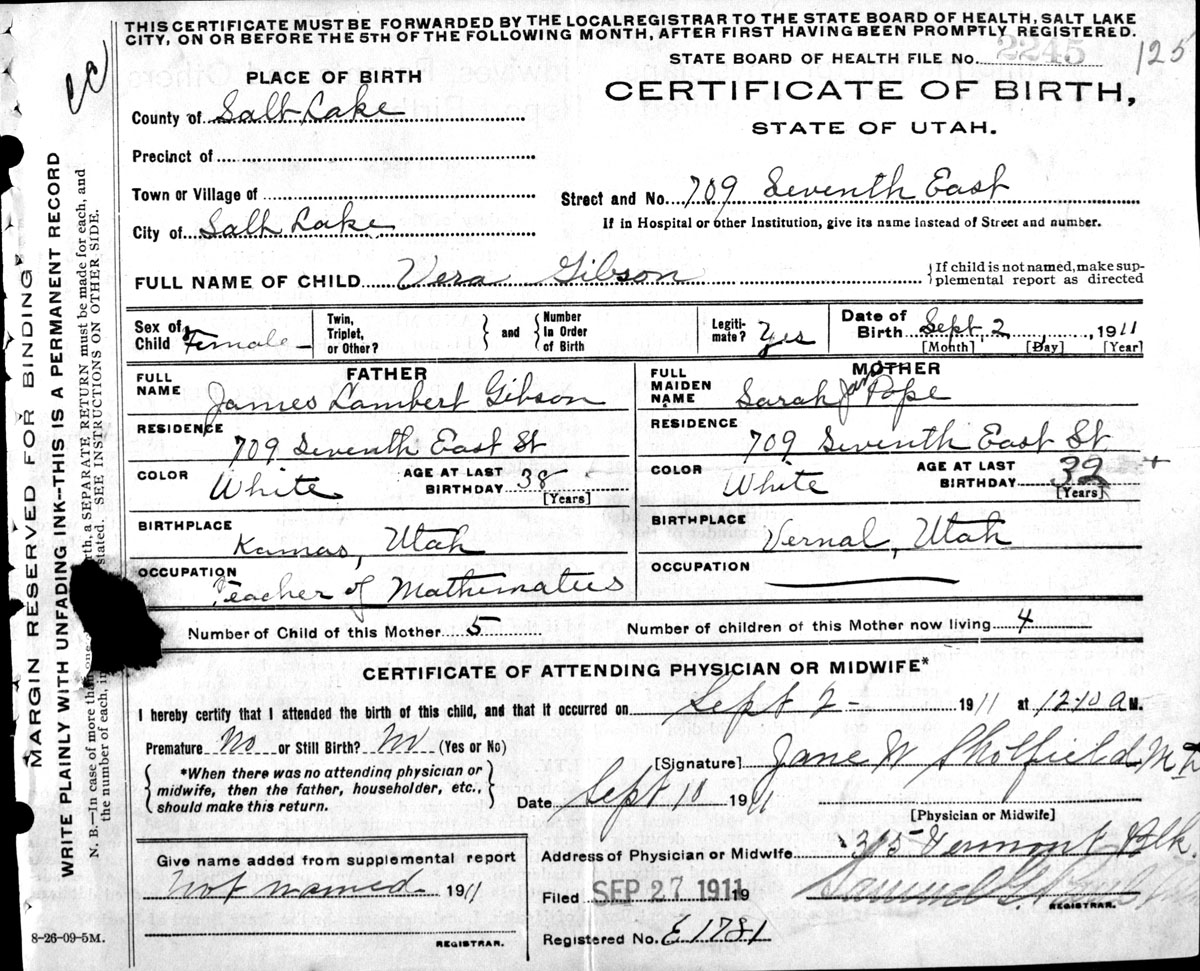 THIS CERTIFICATE MUST BE FORWARDED BY THE LOCAL REGISTRAR TO THE STATE BOARD OF HEALTH, SALT LAKE
CITY, ON OR BEFORE THE 5TH OF THE FOLLOWING MONTH, AFTER FIRST HAVING BEEN PROMPTLY REGISTERED.
STATE BOARD OF HEALTH FILE No. 2245 125
PLACE OF BIRTH
CERTIFICATE OF BIRTH,
STATE OF UTAH.
County of Salt Lake
Precinct of
Town or Village of
Street and No. 709 Seventh East
City of Salt Lake
If in Hospital or other Institution, give its name instead of Street and number.
FULL NAME OF CHILD Vera Gibson
If child is not named, make sup-
plemental report as directed
Sex of Child Female
Twin, Triplet, or Other?
and
Number In Order of Birth
Legiti-mate? Yes
Date of Birth Sept. 2, 1911
[Month] [Day] [Year]
FATHER
FULL NAME James Lambert Gibson
RESIDENCE 709 Seventh East St
COLOR White
AGE AT LAST BIRTHDAY 38 [Years]
BIRTHPLACE Kamas, Utah
OCCUPATION Teacher of Mathematics
MOTHER
FULL MAIDEN NAME Sarah Jan Pope
RESIDENCE 709 Seventh East St
COLOR White
AGE AT LAST BIRTHDAY 32 [Years]
BIRTHPLACE Vernal, Utah
OCCUPATION
Number of Child of this Mother 5
Number of children of this Mother now living 4
CERTIFICATE OF ATTENDING PHYSICIAN OR MIDWIFE*
I hereby certify that I attended the birth of this child, and that it occurred on Sept 2 - 1911 at 12-10 a M.
Premature No or Still Birth? No (Yes or No)
*When there was no attending physician or
midwife, then the father, householder, etc.,
should make this return.
[Signature] Jane W Sholfield M D
Date Sept 10 1911
[Physician or Midwife]
Give name added from supplemental report
not named 1911
REGISTRAR.
Address of Physician or Midwife 315 Vermont Blk.
Filed SEP 27 1911 19
Samuel G.
REGISTRAR.
Registered No. E 1781
8-26-09-5M.
MARGIN RESERVED FOR BINDING
WRITE PLAINLY WITH UNFADING INK--THIS IS A PERMANENT RECORD
N. B.—In case of more than one
rth, a SEPARATE RETURN must be made for each, and
the number of each, in
stated. SEE INSTRUCTIONS ON OTHER SIDE.